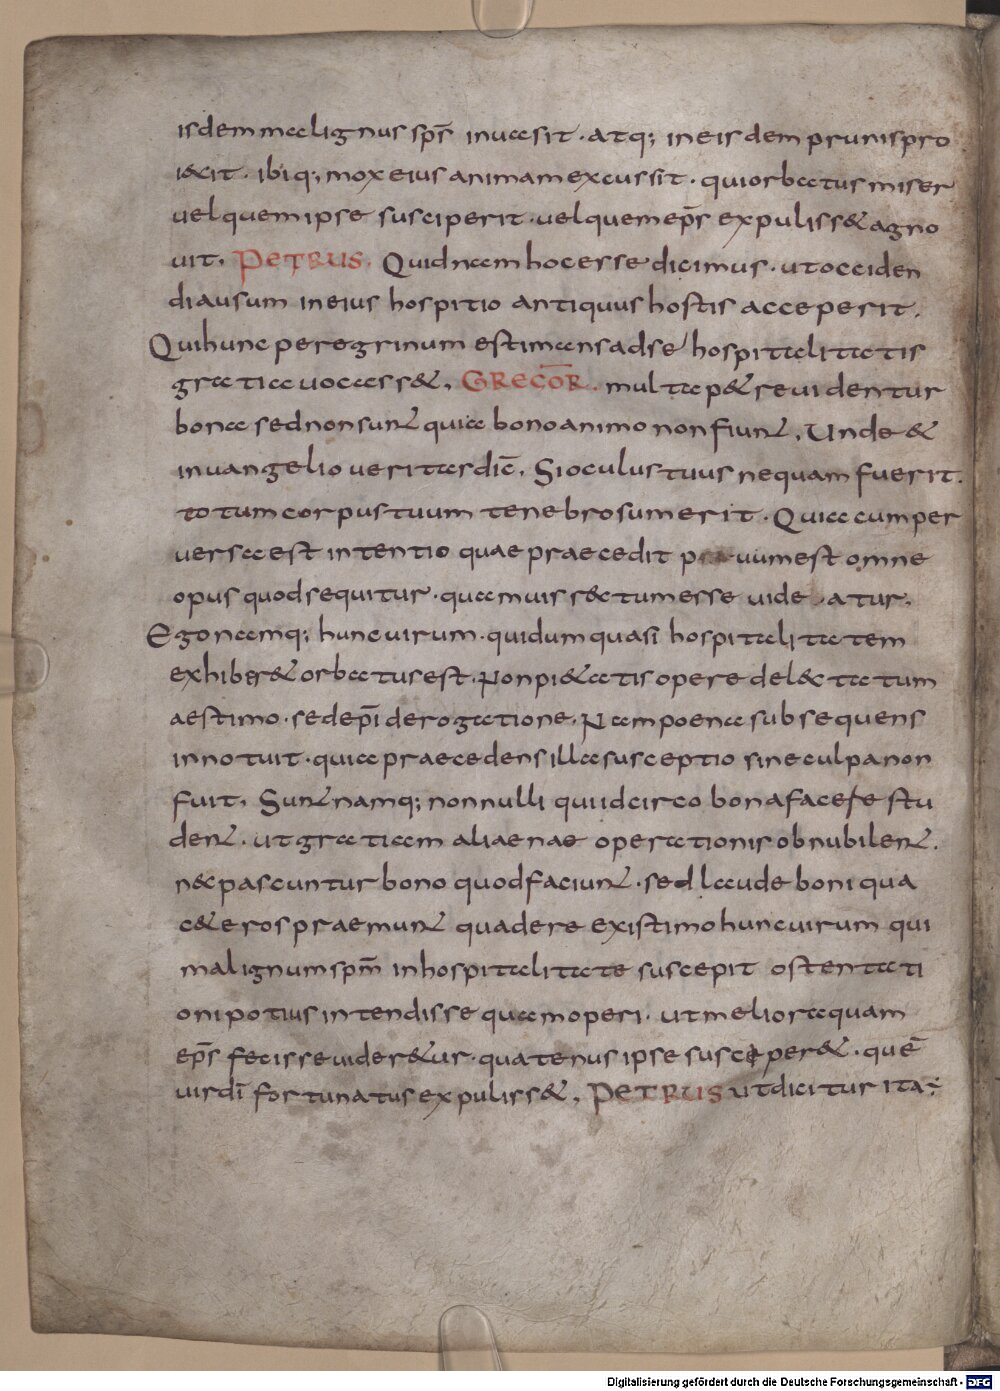 isdem malignus sps̄ inuasit · atq; in eisdem prunis pro
i&cit · ibiq; mox eius animam excussit · qui orbatus miser
uel quem ipse susciperit · uel quem ep̄s expuliss& agno
uit. PETRUS. Quid nam hoc esse dicimus · ut occiden
di ausum in eius hospitio antiquus hostis acceperit.
Qui hunc peregrinum estimans ad se hospitalitatis
gratia uocass&. GREGOR̄. multa p& se uidentur
bona sed non sunt quia bono animo non fiunt. Unde &
in uangelio ueritas dic̄. Si oculus tuus nequam fuerit.
totum corpus tuum tenebrosum erit · Quia cum per
uersa est intentio quae praecedit prauum est omne
opus quod sequitur · quamuis r&tum esse uideatur.
Ego namq; hunc uirum · qui dum quasi hospitalitatem
exhiber& orbatus est · Non pi&atis opere del&tatum
aestimo · sed ep̄i derogatione. Nam poena subsequens
innotuit · quia praecedens illa susceptio sine culpa non
fuit. Sunt namq; nonnulli qui idcirco bona facere stu
dent · ut gratiam alienae operationis obnubilent.
n& pascuntur bono quod faciunt · sed laude boni qua
c&eros praemunt quadere existimo hunc uirum qui
malignum spm̄ in hospitalitate suscepit ostentati
oni potius intendisse quam operi · ut meliora quam
ep̄s fecisse uider&ur · quatenus ipse suscéper& · quē
uir dī fortunatus expuliss&. PETRUS ut dicitur ita: